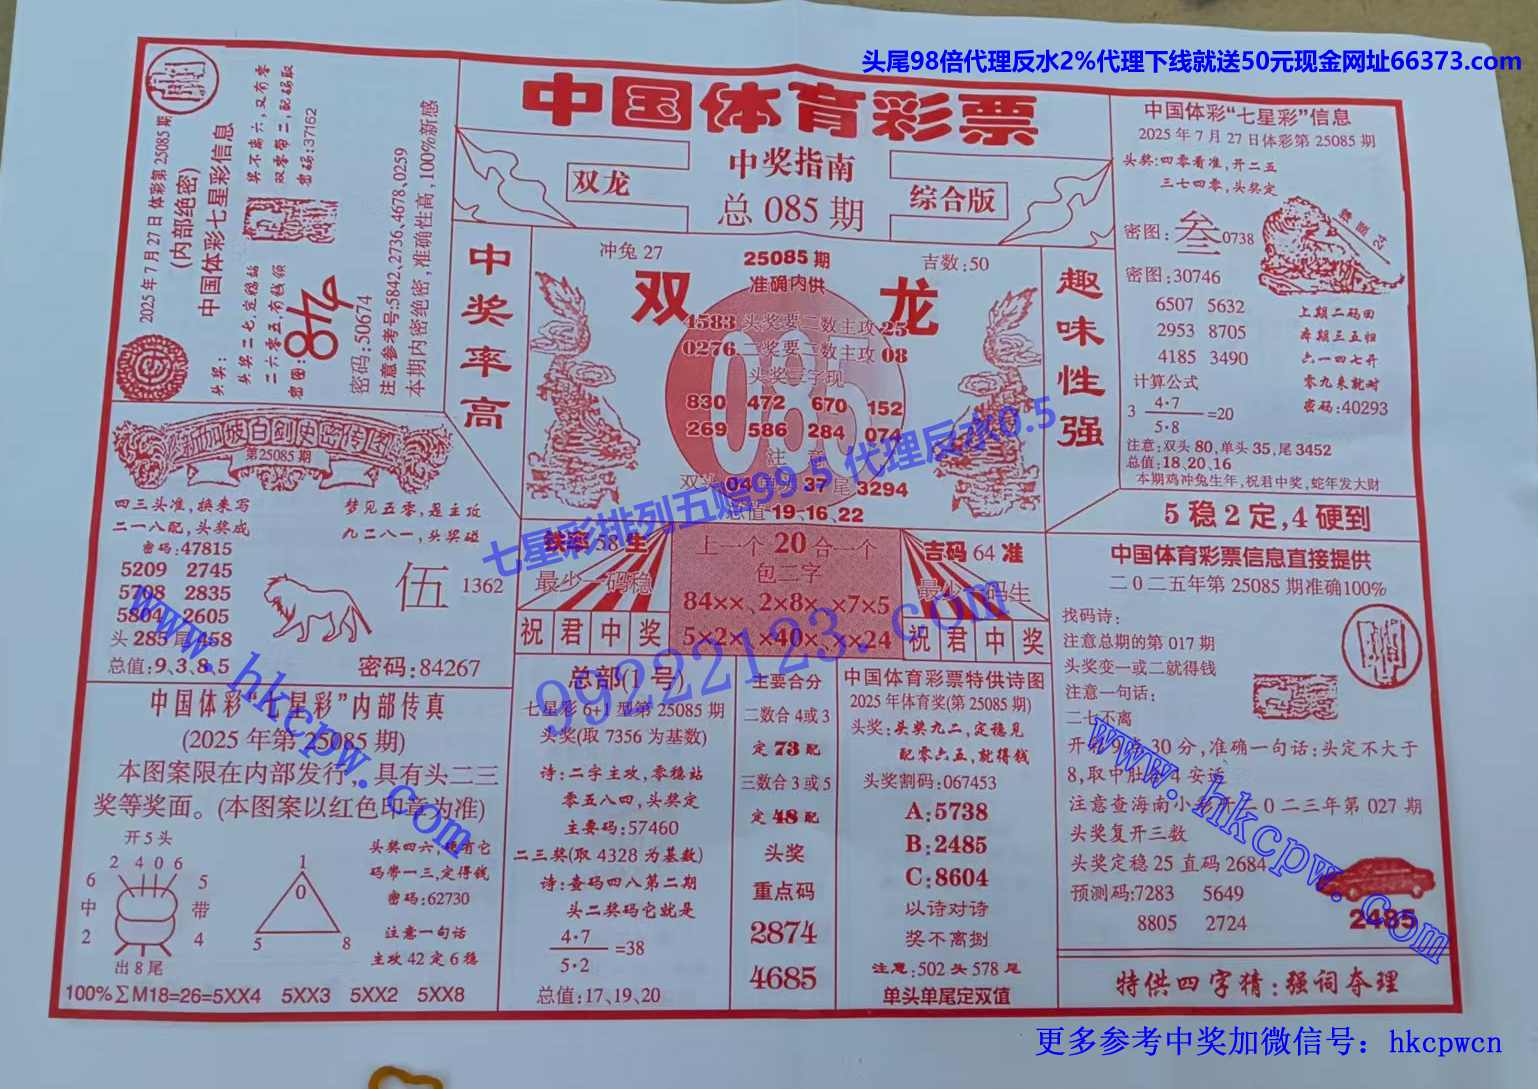 头尾98倍代理反水2%代理下线就送50元现金网址66373.com
2025年7月27日 体彩第25085期
(内部绝密)
中国体彩七星彩信息
头奖:
头奖二七,定稳站
二六零五,有钱领
密图:
头奖不离六,又有零
双零带二,配码取
密码:37162
密码:50674
注意参考号:5842、2736、4678、0259
本期内密绝密,准确性高,100%新感
中国体育彩票
双龙
中奖指南
总 085 期
综合版
中国体彩“七星彩”信息
2025年7月27日体彩第25085期
头奖:四零看准,开二五
三七四零,头奖定
密图:
叁
0738
密图:30746
6507 5632
2953 8705
4185 3490
上期二码回
本期三五归
六一四七开
零九来就对
密码:40293
计算公式
3 4·7/5·8=20
注意:双头80,单头35,尾3452
总值:18、20、16
本期鸡冲兔生年,祝君中奖,蛇年发大财
中奖率高
冲兔 27
25085期
吉数:50
准确内供
双
龙
085
4583 头奖要二数主攻 25
0276 二奖要二数主攻 08
头奖二字现
830 472 670 152
269 586 284 074
注意
双头 04 单头 37 尾 3294
总值 19、16、22
趣味性强
新加坡白剑史密传图
第25085期
四三头准,换来写
二一八配,头奖成
密码:47815
梦见五零,是主攻
九二八一,头奖磁
5209 2745
5708 2835
5804 2605
头 285 尾 458
总值:9、3、8、5
伍
1362
密码:84267
铁率 58 生
最少一码稳
祝君中奖
上一个 20 合一个
包二字
84××、2×8×、×7×5
5×2×、×40×、××24
吉码 64 准
最少一码生
祝君中奖
5稳2定,4硬到
中国体育彩票信息直接提供
二0二五年第 25085 期准确100%
找码诗:
注意总期的第 017 期
头奖变一或二就得钱
注意一句话:
二七不离
开奖9点30分,准确一句话:头定不大于
8,取中肚合4安运
注意查海南小易开二0二三年第 027 期
头奖复开三数
头奖定稳 25 直码 2684
预测码:7283 5649
8805 2724
2485
特供四字猜:强词夺理
中国体彩“七星彩”内部传真
(2025年第25085期)
本图案限在内部发行,具有头二三
奖等奖面。(本图案以红色印章为准)
开5头
2 4 0 6
6 5
中 带
2 4
出8尾
1
0
5 8
头奖四六,稳有它
码带一三,定得钱
密码:62730
注意一句话
主攻42定6稳
100%∑M18=26=5XX4 5XX3 5XX2 5XX8
总部(1号)
七星彩 6+1 型第 25085 期
头奖(取 7356 为基数)
诗:二字主攻,零稳站
零五八四,头奖定
主要码:57460
二三奖(取 4328 为基数)
诗:查码四八第二期
头二奖码它就是
4·7/5·2=38
总值:17、19、20
主要合分
二数合4或3
定 73 配
三数合3或5
定 48 配
头奖
重点码
2874
4685
中国体育彩票特供诗图
2025年体育奖(第25085期)
头奖:头奖九二,定稳见
配零六五,就得钱
头奖割码:067453
A:5738
B:2485
C:8604
以诗对诗
奖不离捌
注意:502 头 578 尾
单头单尾定双值
七星彩排列五赔99.5 代理反水0.5
99222123.com
www.hkcpw.com
www.hkcpw.com
更多参考中奖加微信号：hkcpwcn